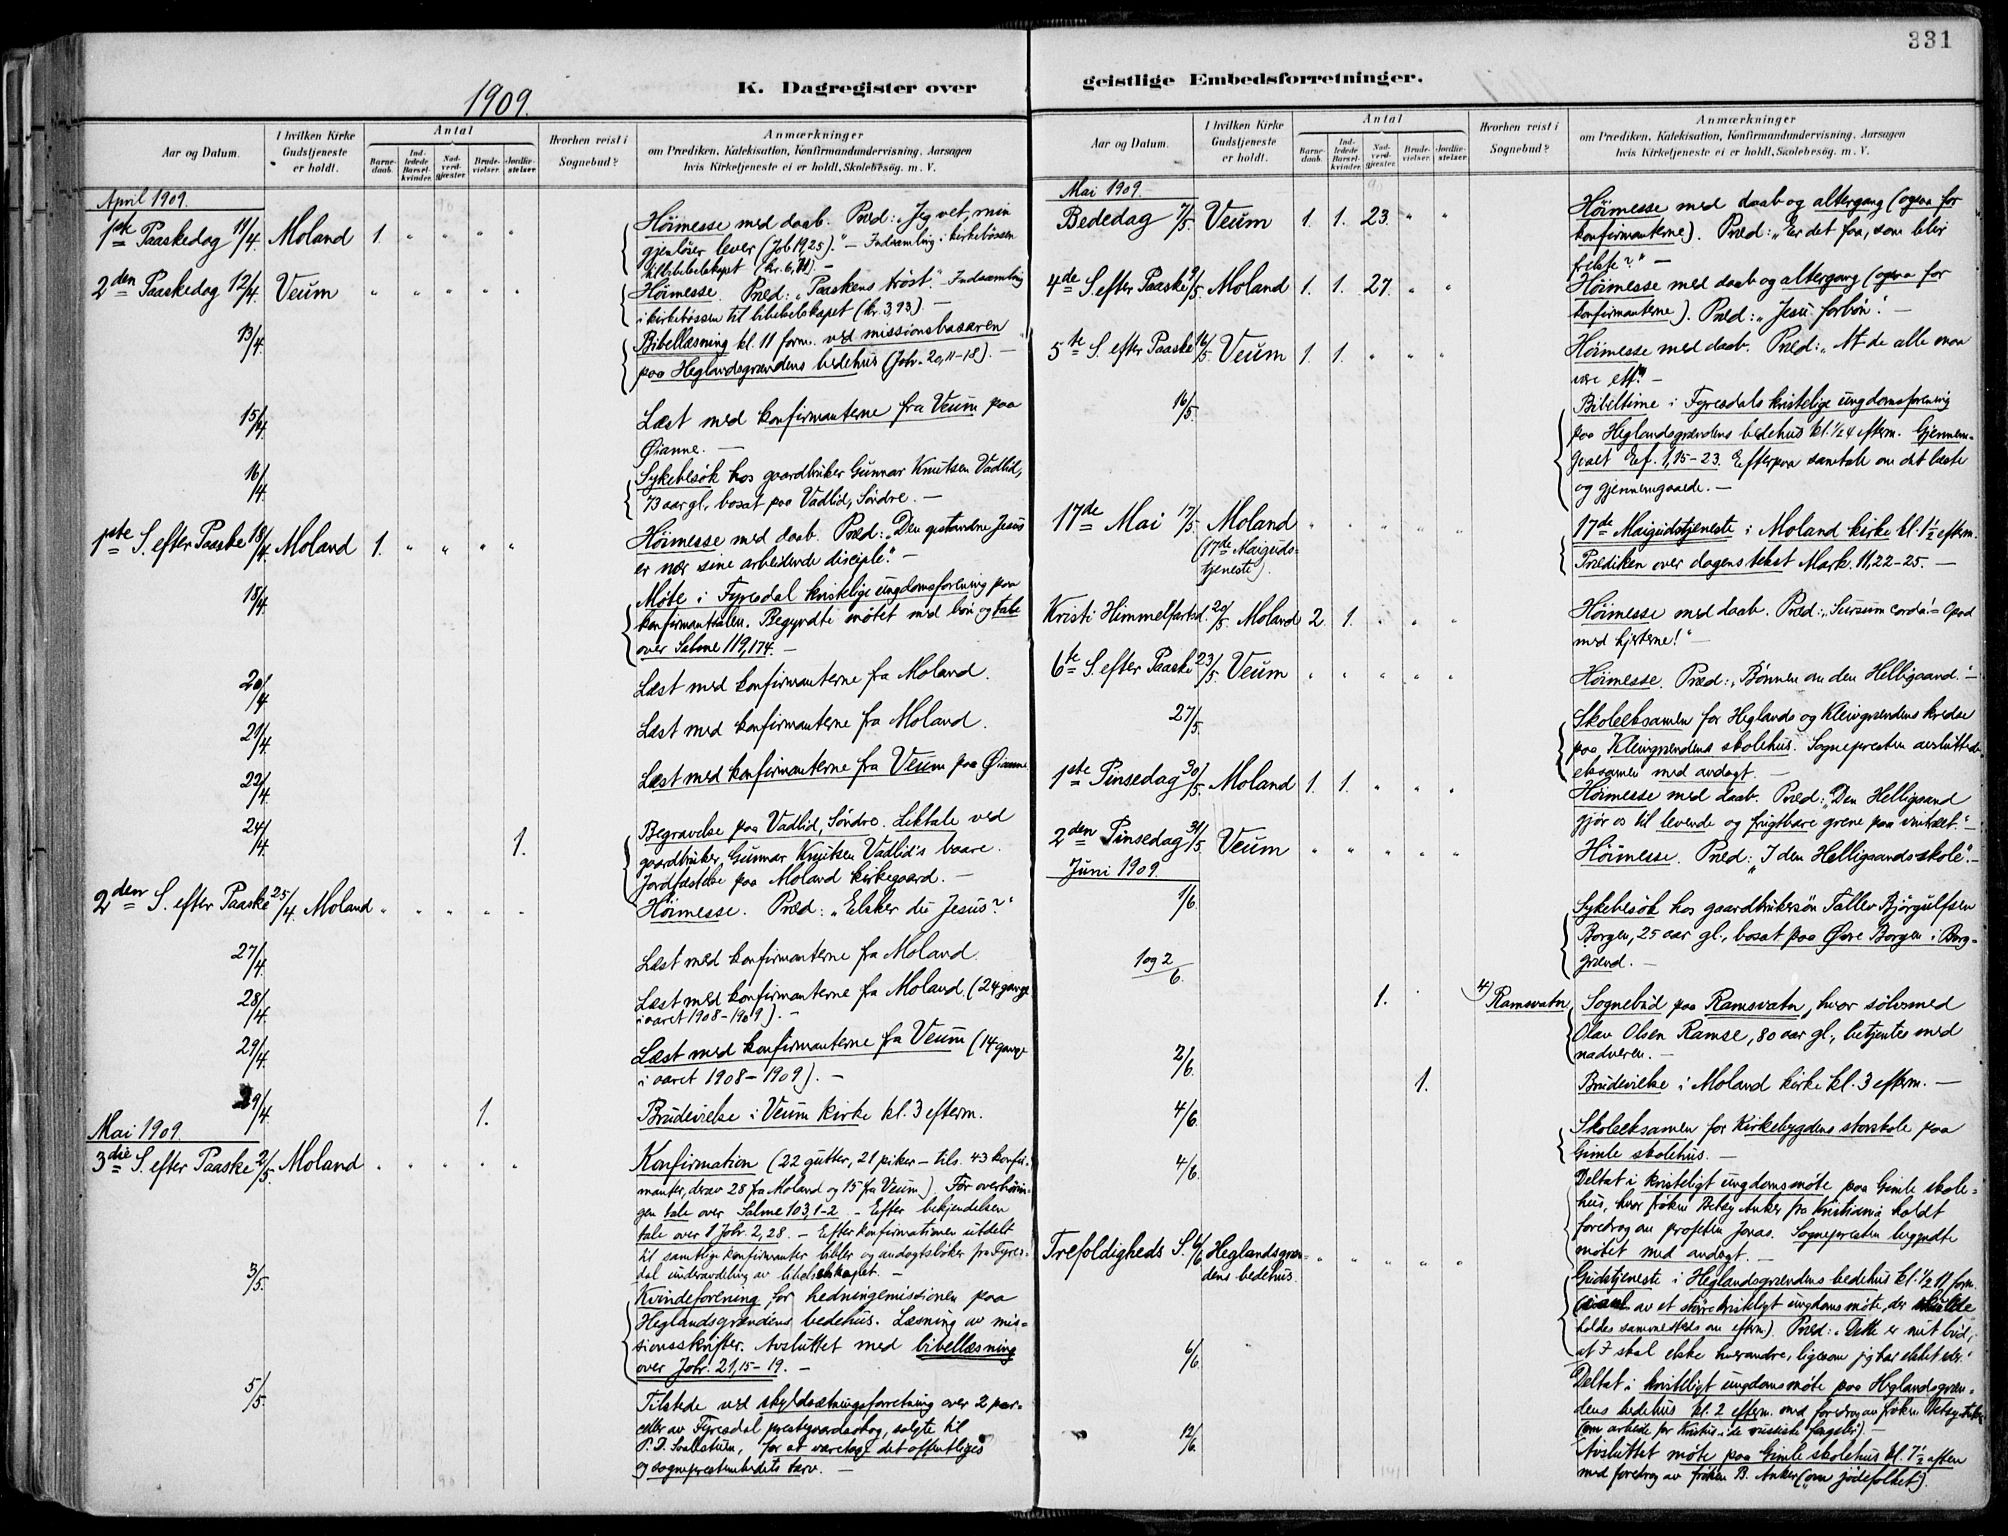 331
1909.
K. Dagregister over
geistlige Embedsforretninger.
Aar og Datum.
I hvilken Kirke Gudstjeneste er holdt.
Antal
Barnedaab.
Indledede Barselkvinder.
Nadverdgjæster.
Brudevielser.
Jordfæstelser.
Hvorhen reist i Sognebud?
Anmærkninger
om Prædiken, Katekisation, Konfirmandundervisning, Aarsagen
hvis Kirketjeneste ei er holdt, Skolebesøg m. V.
April 1909.
1ste Paaskedag 11/4. Moland 1. " " " " Höimesse med daab. Præd: „Jeg vet, min
gjenlöser lever (Job 19,25)." – Indsamling i kirkebössen
til bibelselskapet (kr. 6,71). –
2den Paaskedag 12/4. Veum " " " " " Höimesse. Præd: „Paaskens tröst." Indsamling
i kirkebössen til bibelselskapet (kr. 3,93).
13/4. Bibellæsning kl. 11 form. ved missionsbasaren
paa Heglandsgrændens bedehus (Joh. 20,11-18). –
15/4. Læst med konfirmanterne fra Veum paa
Øianne. –
16/4. Sykebesök hos gaardbruker Gunnar Knutsen Vadlid,
73 aar gl., bosat paa Vadlid, Söndre. –
1ste S. efter Paaske 18/4. Moland 1. " " " " Höimesse med daab. Præd: „Den opstandne Jesus
er nær sine arbeidende disciple." –
18/4. Møte i Fyresdal kristelige ungdomsforening paa
konfirmantsalen. Begyndte mötet med bön og tale
over Salme 119,174. –
20/4. Læst med konfirmanterne fra Moland.
21/4. Læst med konfirmanterne fra Moland.
22/4. Læst med konfirmanterne fra Veum paa Øianne
24/4. 1. Begravelse paa Vadlid, Söndre. Liktale ved
gaardbruker Gunnar Knutsen Vadlid's baare.
Jordfæstelse paa Moland kirkegaard. –
2den S. efter Paaske 25/4. Moland " " " " " Höimesse. Præd: „Elsker du Jesus?"
27/4. Læst med konfirmanterne fra Moland.
28/4. Læst med konfirmanterne fra Moland. (24 gange
i aaret 1908-1909). –
29/4. Læst med konfirmanterne fra Veum (14 gange
i aaret 1908-1909). –
29/4. 1. Brudevielse i Veum kirke kl. 3 efterm.
Mai 1909.
3die S. efter Paaske 2/5. Moland " " " " " Konfirmation (22 gutter, 21 piker – tils. 43 konfir-
manter, derav 28 fra Moland og 15 fra Veum). För overhörin-
gen tale over Salme 103,1-2. – Efter bekjendelsen
tale over 1 Joh. 2,28. – Efter konfirmationen utdelt
til samtlige konfirmanter bibler og andagtsböker fra Fyres-
dal underavdeling av bibelselskapet. –
3/5. Kvindeforening for hedningemissionen paa
Heglandsgrændens bedehus. Læsning av mis-
sionsskrifter. Avsluttet med bibellæsning
over Joh. 21,15-19. –
5/5. Tilstede ved skyldsætningsforretning over 2 par-
celler av Fyresdal prestegaardsskog, solgte til
for at varetage det offentliges
og sognepræstembedets tarv. –
Aar og Datum.
I hvilken Kirke Gudstjeneste er holdt.
Antal
Barnedaab.
Indledede Barselkvinder.
Nadverdgjæster.
Brudevielser.
Jordfæstelser.
Hvorhen reist i Sognebud?
Anmærkninger
om Prædiken, Katekisation, Konfirmandundervisning, Aarsagen
hvis Kirketjeneste ei er holdt, Skolebesög m. V.
Mai 1909.
Bededag 7/5. Veum 1. 1. 23. " " Höimesse med daab og altergang (ogsaa for
konfirmanterne). Præd: „Er det faa, som blir
frelste?" –
4de S. efter Paaske 9/5. Moland 1. 1. 27. " " Höimesse med daab og altergang (ogsaa for
konfirmanterne). Præd: „Jesu forbön." –
5te S. efter Paaske 16/5. Veum 1. 1. " " " Höimesse med daab. Præd: „At de alle maa
være ett." –
16/5. Bibeltime i Fyresdals kristelige ungdomsforening
paa Heglandsgrændens bedehus kl. 1/2 4 efterm. Gjennem-
gaaet Ef. 1,15-23. Efterpaa samtale om det læste
og gjennemgaaede. –
17de Mai 17/5. Moland " " " " " 17de Maigudstjeneste i Moland kirke kl. 1 1/2 efterm.
(17de Maigudstjeneste). Prædiken over dagens tekst Mark. 11,22-25. –
Kristi Himmelfartsd. 20/5. Moland 2. 1. " " " Höimesse med daab. Præd: „Sursum corda! – Opad
med hjerterne!" –
6te S. efter Paaske 23/5. Veum " " " " " Höimesse. Præd: „Bönnen om den Helligaand." –
27/5. Skoleeksamen for Heglands og Kleivgrændens kredse
paa Kleivgrændens skolehus. Sognepresten avsluttede
eksamen med andagt. –
1ste Pinsedag 30/5. Moland 1. 1. " " " Höimesse med daab. Præd: „Den Helligaand
gjör os til levende og frugtbare grene paa vintræet." –
2den Pinsedag 31/5. Veum " " " " " Höimesse. Præd: „I den Helligaands skole". –
Juni 1909.
1/6. Sykebesök hos gaardbrukersön Tallev Björgulfsen
Borgen, 25 aar gl., bosat paa Øvre Borgen i Borg-
grænd. –
1 og 2/6. 1. 4) Ramsvatn Sognebud paa Ramsvatn, hvor sölvsmed
Olav Olsen Ramse, 80 aar gl., betjentes med
nadveren. –
2/6. 1. Brudevielse i Moland kirke kl. 3 efterm. –
4/6. Skoleeksamen for Kirkebygdens storskole paa
Gimle skolehus. –
4/6. Deltat i kristeligt ungdomsmöte paa Gimle skole-
hus, hvor fröken Betsy Anker fra Kristiania holdt
foredrag om profeten Jonas. Sognepresten begyndte
mötet med andagt. –
Trefoldigheds S. 6/6. Heglandsgræn- " " " " " Gudstjeneste i Heglandsgrændens bedehus kl. 1/2 11 form.
dens bedehus. av et större kristeligt ungdomsmöte, der skulde
holdes sammesteds om efterm). Præd: „Dette er mit bud,
at I skal elske hverandre, ligesom jeg har elsket eder."
6/6. Deltat i kristeligt ungdomsmöte paa Heglandsgræn-
dens bedehus kl. 2 efterm. med foredrag av fröken Betsy Anker
(om arbeide for Kristus i de russiske fængsler). –
12/6. Avsluttet möte paa Gimle skolehus kl. 7 1/2 aften
med foredrag av fröken B. Anker („om jödefolket").